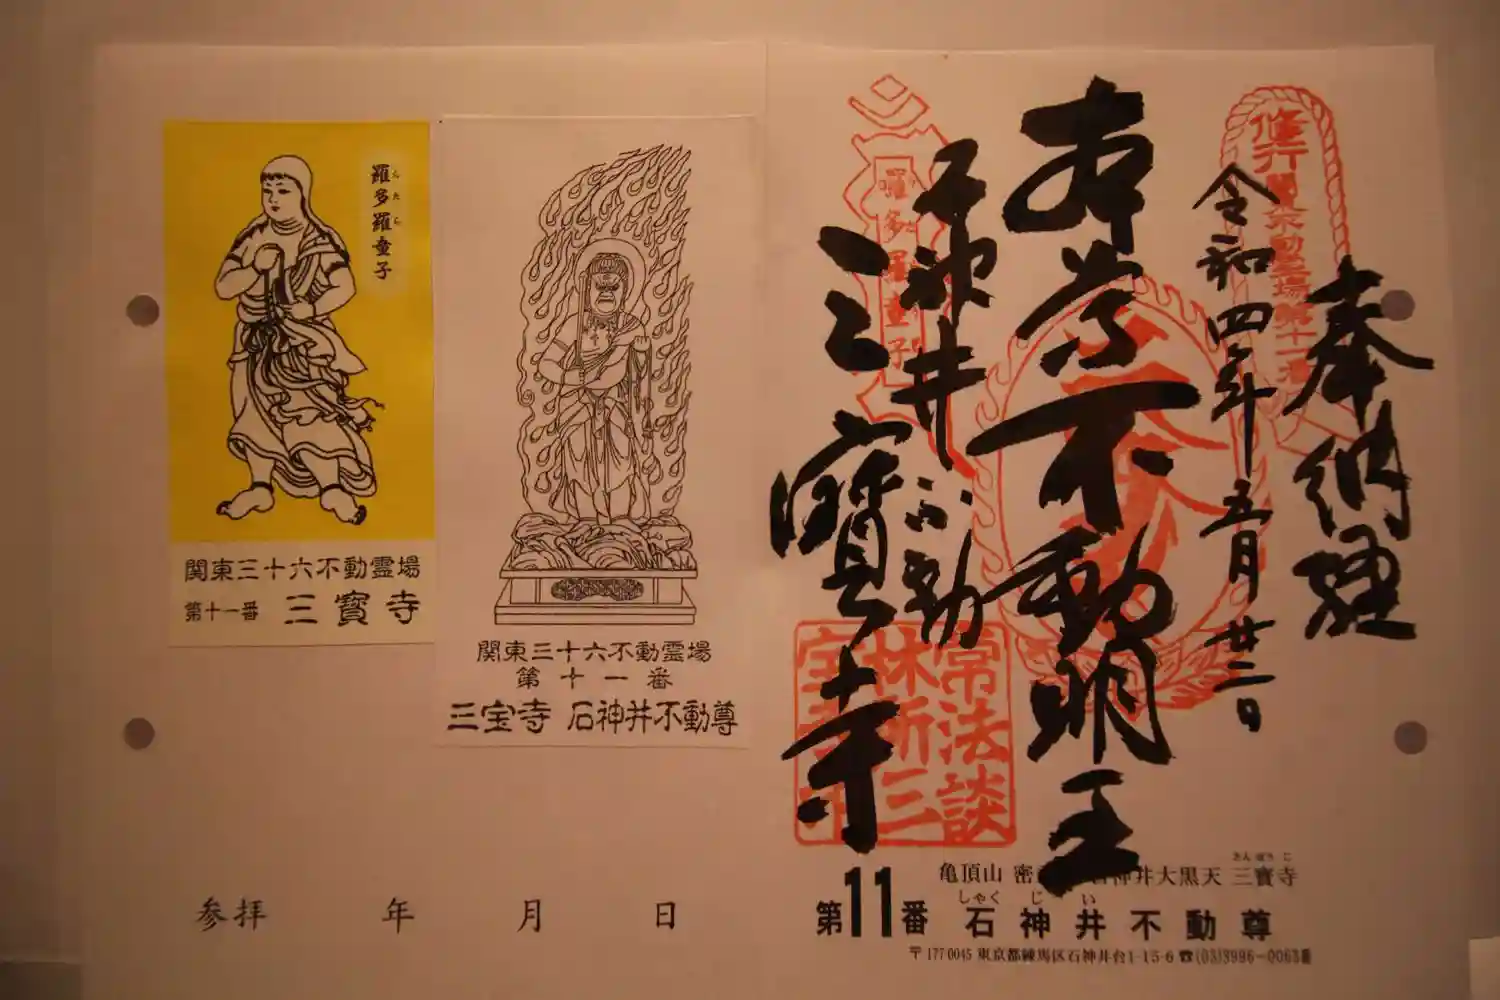 奉納経
令和四年五月廿二日
本尊不動明王
石神井不動
三寶寺
修行
関東三十六不動霊場第十一番
羅多羅童子
常法談
林所三
亀頂山 密
石神井大黒天 三寶寺
さんぽうじ
第11番 石神井不動尊
しゃくじい
〒177-0045 東京都練馬区石神井台1-15-6 ☎(03)3996-0063番
羅多羅童子
らたら
関東三十六不動霊場
第十一番 三寶寺
関東三十六不動霊場
第十一番
三宝寺 石神井不動尊
参拝 年 月 日